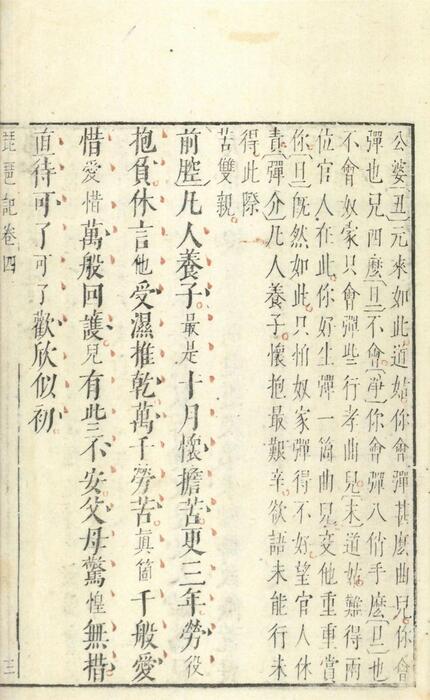 公婆〔丑〕元來如此道姑你會彈甚麽曲兒你會
彈也兒四麽〔旦〕不會〔净〕你會彈八俏手麽〔旦〕也
不會奴家只會彈些行孝曲兒〔末〕道姑難得兩
位官人在此你好生彈一箇曲兒交他重重賞
你〔旦〕旣然如此只怕奴家彈得不好望官人休
責〔彈介〕凡人養子懷抱最艱辛欲語未能行未
得此際
苦雙親
前腔〕凡人養子最是十月懷擔苦更三年勞役
抱負休言他受濕推乾萬千勞苦真箇千般愛
惜愛惜萬般回護兒有些不安父母驚惶無措
直待可了可了歡欣似初
琵琶記卷四
三